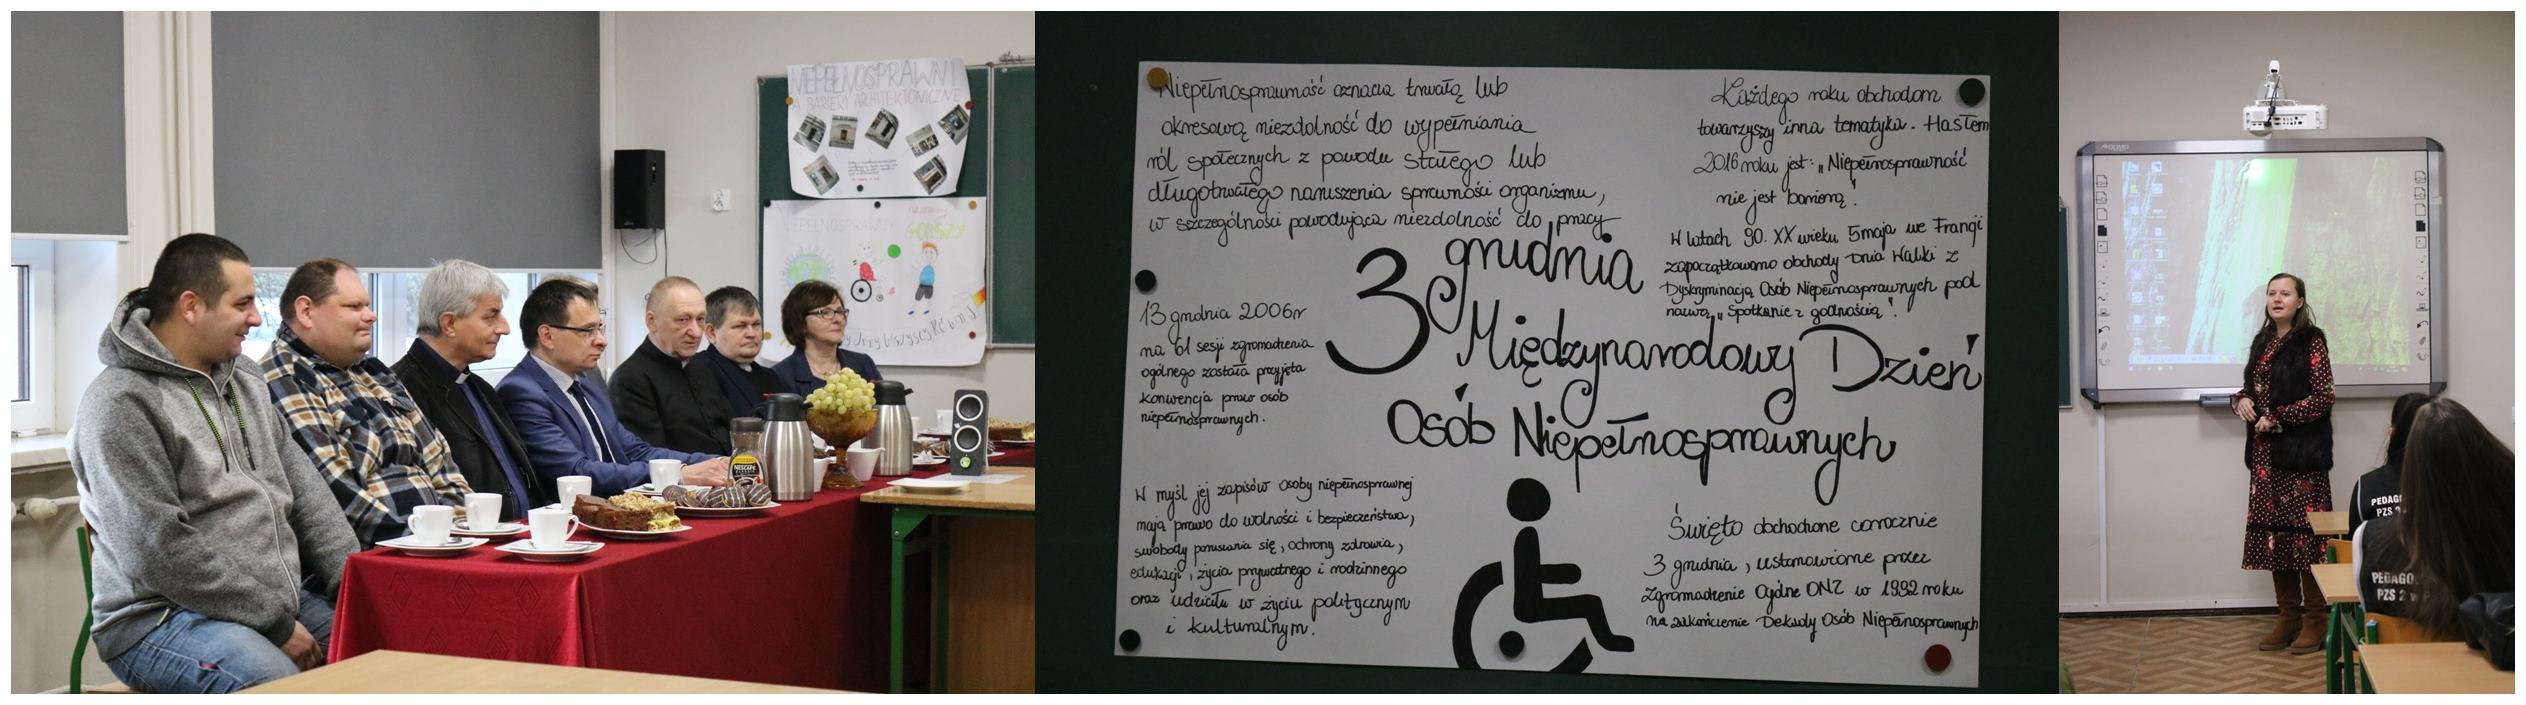 NIEPEŁNOSPRAWNI
A BARIERY ARCHITEKTONICZNE
NIEPEŁNOSPRAWNY
GORSZY
NESCAFÉ
Niepełnosprawność oznacza trwałą lub
okresową niezdolność do wypełniania
ról społecznych z powodu stałego lub
długotrwałego naruszenia sprawności organizmu,
w szczególności powodująca niezdolność do pracy
Każdego roku obchodom
towarzyszy inna tematyka. Hasłem
2016 roku jest: „Niepełnosprawność
nie jest barierą".
W latach 90. XX wieku 5 maja we Francji
zapoczątkowano obchody Dnia Walki z
Dyskryminacją Osób Niepełnosprawnych pod
nazwą „Spotkanie z godnością".
3 grudnia
Międzynarodowy Dzień
Osób Niepełnosprawnych
13 grudnia 2006r
na 61 sesji zgromadzenia
ogólnego została przyjęta
konwencja praw osób
niepełnosprawnych.
W myśl jej zapisów osoby niepełnosprawnej
mają prawo do wolności i bezpieczeństwa,
swobody poruszania się, ochrony zdrowia,
edukacji, życia prywatnego i rodzinnego
oraz udziału w życiu politycznym
i kulturalnym.
Święto obchodzone corocznie
3 grudnia, ustanowione przez
Zgromadzenie Ogólne ONZ w 1992 roku
na zakończenie Dekady Osób Niepełnosprawnych
PEDAGO
PZS 2
PEDAGO
PZS 2 w P